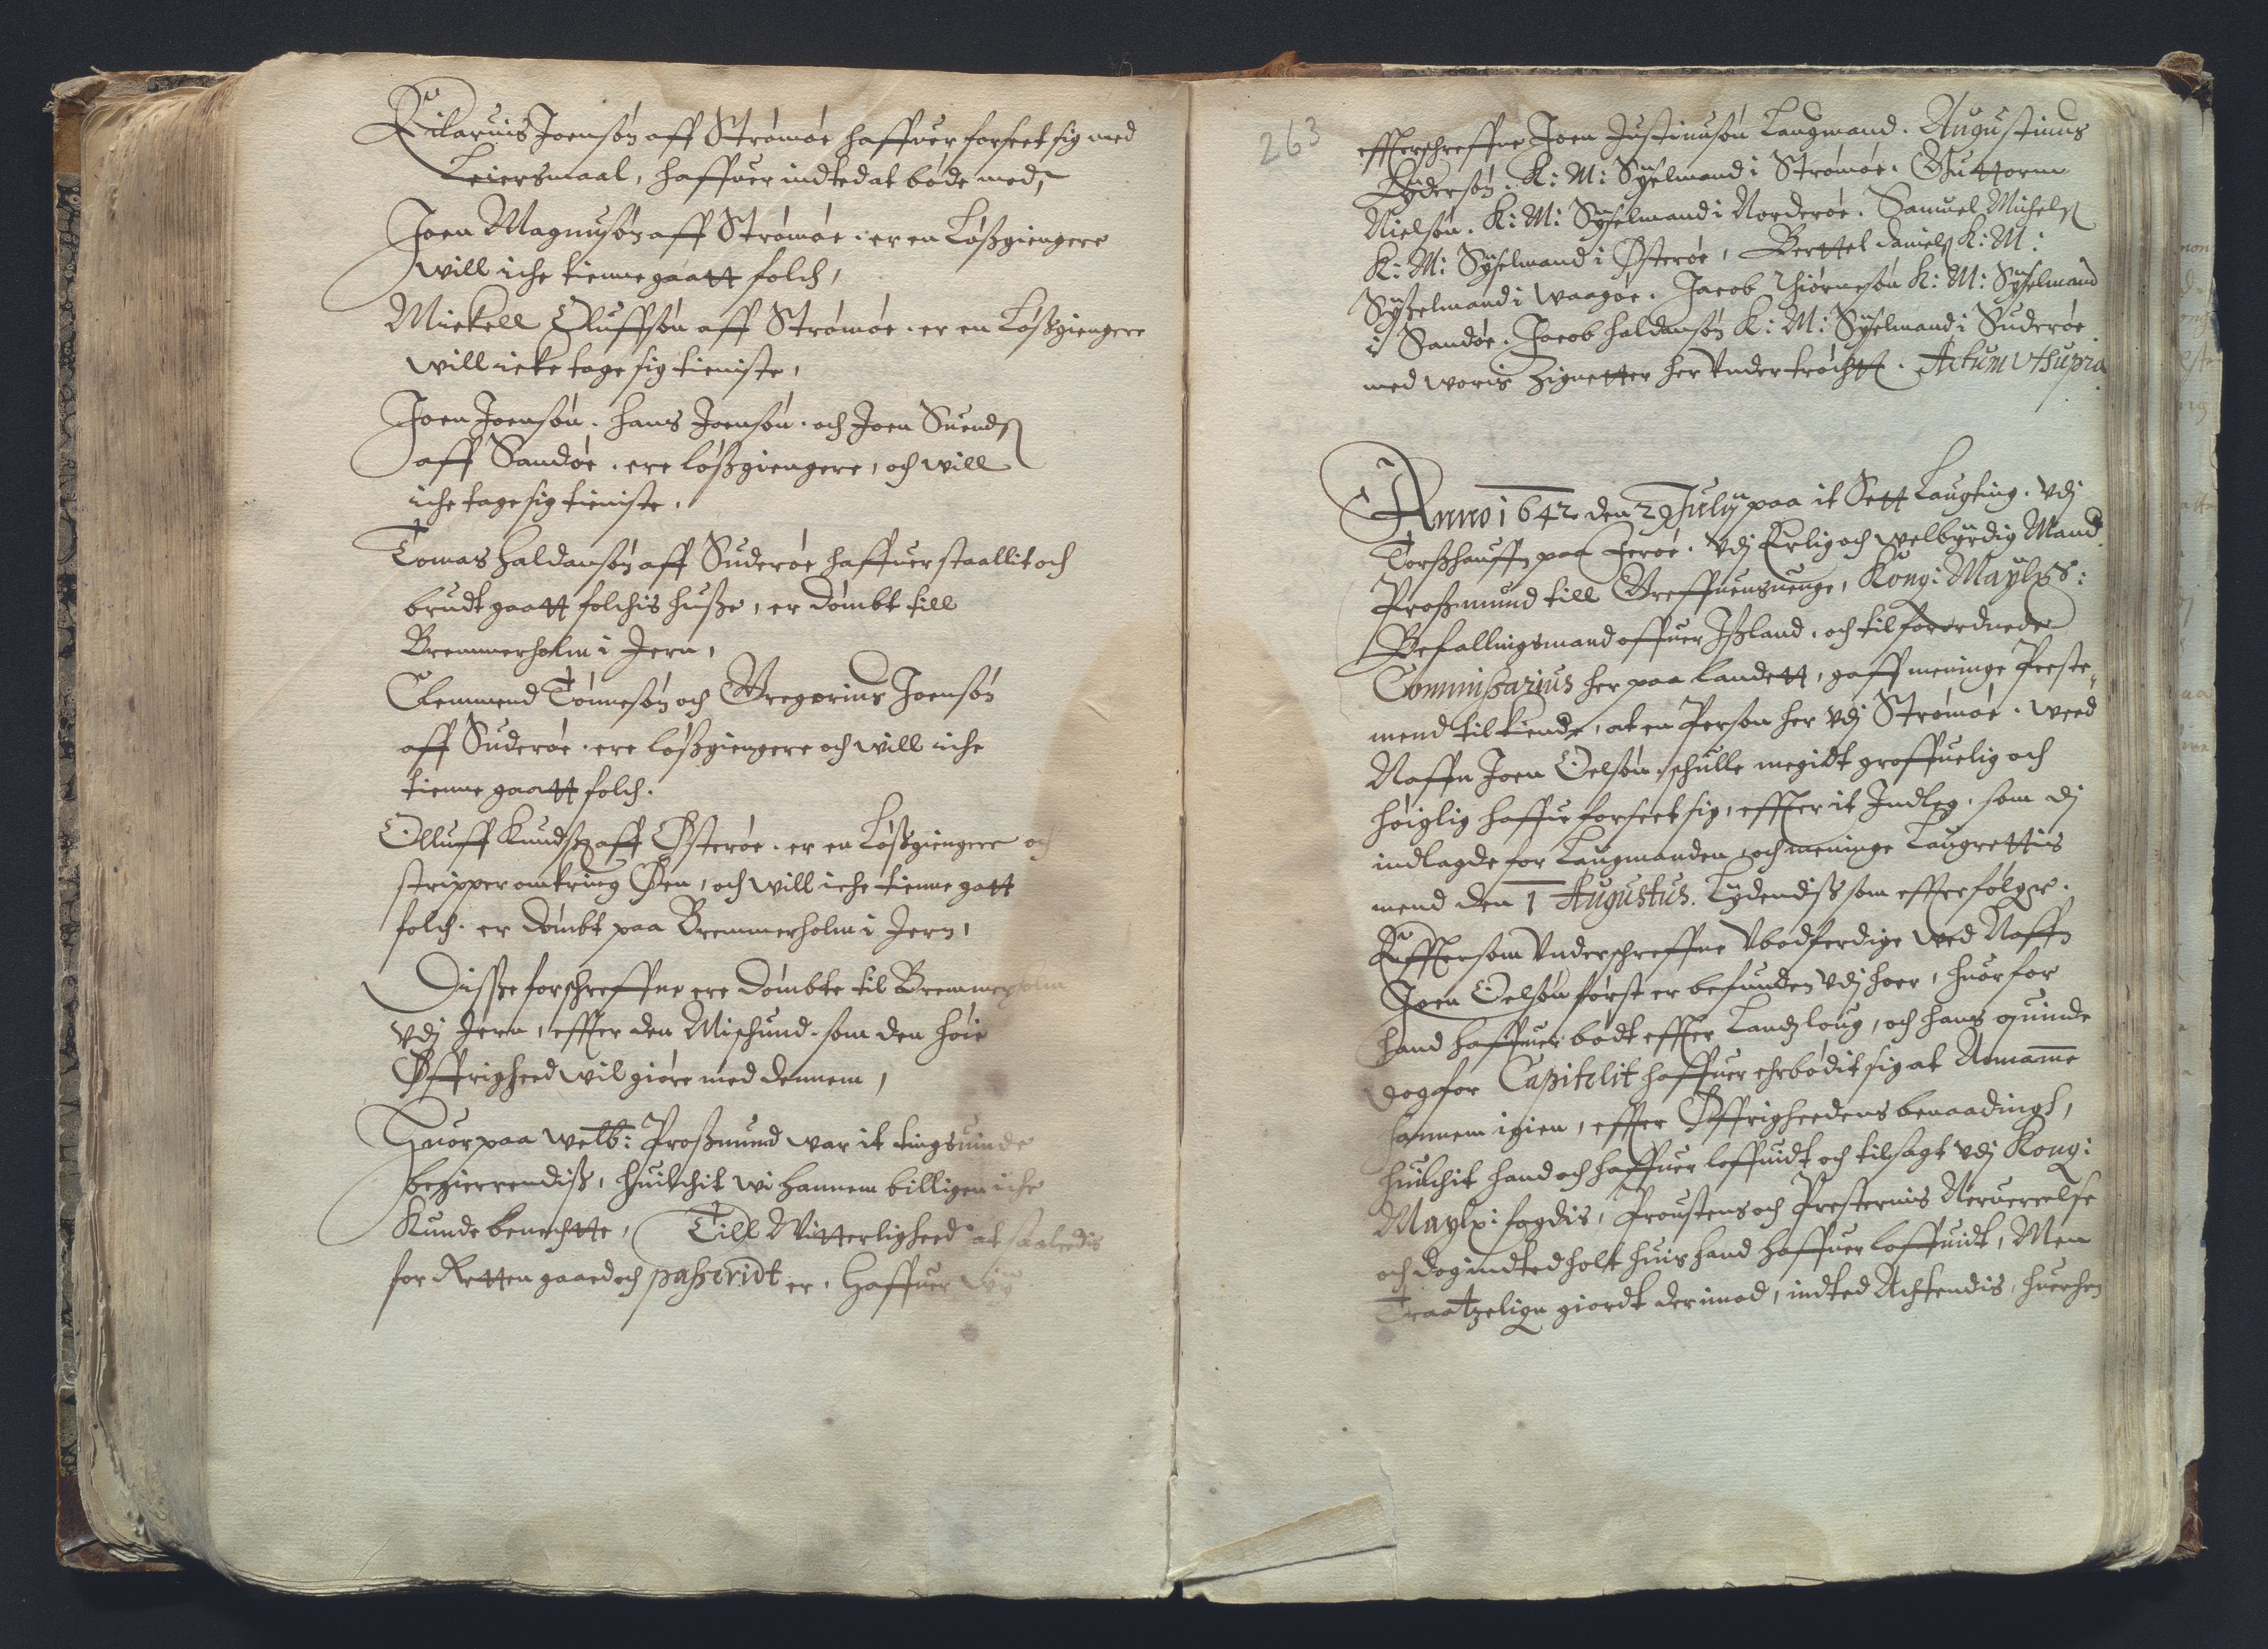 Hilarius Joensøn aff Strømøe haffuer forseet sig med
Leiersmaal, haffuer indted at bøde med,
Joen Magnusøn aff Strømøe er en Løszgiengere
will iche tienne gaatt folch,
Mickell Oluffsøn aff Strømøe er en Løszgiengere
will icke tage sig tieniste,
Joen Joensøn. Hans Joensøn. och Joen Suends
aff Sandøe. ere løszgiengere, och will
iche tage sig tieniste.
Tomas Haldansøn aff Suderøe haffuer staallit och
brudt gaatt folchis husze, er dømbt till
Bremmerholm i Jern,
Clemmend Tønnesøn och Gregorius Joensøn
aff Suderøe. ere løszgiengere och will iche
tienne gaatt folch.
Olluff Knudsz aff Østerøe. er en Løszgiengere och
stripper omkring Øen, och will iche tienne gatt
folch. er dømbt paa Bremmerholm i Jern,
Disze forschreffne ere dømbte til Bremmerholm
vdj Jern, effter den Mischund. som den høie
Øffrigheed wil giøre med dennem,
Huor paa Welb: Proszmund war it tingsuinde
begierrendisz, huilchit wi hannem billigen iche
Kunde benechtte, Till Witterligheed at saaledis
for Retten gaaed och passeridt er. Haffuer
263
effterschreffne Joen Justinusøn Laugmand. Augustinus
Lydersøn. K: M: Syselmand i Strømøe. Guttorm
Nielsøn. K: M: Syselmand i Norderøe. Samuel Michels
K: M: Syselmand i Østerøe, Berttel Daniels K: M:
Syszelmand i Waagøe. Jacob Thiørnesøn K: M: Sysselmand
i Sandøe. Jacob Haldansøn K: M: Sysselmand i Suderøe
med woris Zignetter her vnder tröchtt. Actum Vt supra
Anno 1642 den 29 July paa it Sett Laugting. vdj
Torszhauffn paa Ferøe. vdj Erlig och welbyrdig Mand
Proszmund till Greffuensuenge, Kong: Maytz:
Befallingsmand offuer Iszland, och tilforordnede
Commiszarius her paa Landett, gaff meninge Preste-
mend tilkiende, at en Person her vdj Strømøe. weed
Naffn Joen Oelsøn. schulle megidt groffuelig och
høiglig haffue forseet sig, effter it Indleg, som dj
indlagde for Laugmanden, och meninge Laugrettis
mend den 1 Augustus. Lydendisz som effterfølger.
Efftersom Vnderschreffne Vbodferdige wed Naffn
Joen Oelsøn først er befunden vdj hoer, huorfor
hand haffuer bødt effter Landzloug, och hans quinde
dog for Capitelit haffuer ehrbødit sig at Annamme
hannem igien, effter Øffrigheedens benaadingh,
huilchit hand och haffuer loffuidt och tilsagt vdj Kong:
Maytz: fogdis, Proustens och Presternis Neruerelse
och dog indted holt huis hand haffuer loffuidt, Men
Traatzeligen giordt derimod, indted Achtendis, huerchen